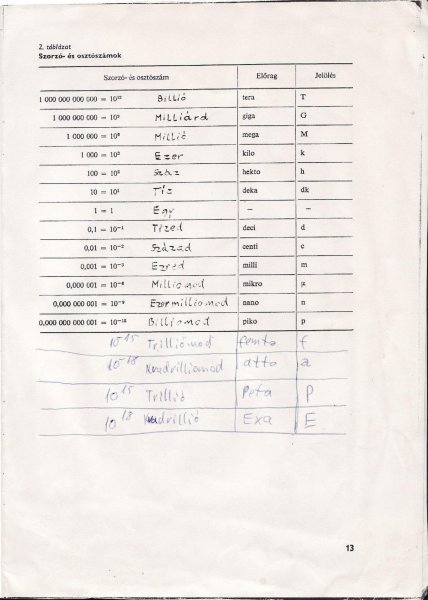 2. táblázat
Szorzó- és osztószámok
Szorzó- és osztószám Előrag Jelölés
1 000 000 000 000 = 10¹² Billió tera T
1 000 000 000 = 10⁹ Milliárd giga G
1 000 000 = 10⁶ Millió mega M
1 000 = 10³ Ezer kilo k
100 = 10² Száz hekto h
10 = 10¹ Tíz deka dk
1 = 1 Egy — —
0,1 = 10⁻¹ Tized deci d
0,01 = 10⁻² Század centi c
0,001 = 10⁻³ Ezred milli m
0,000 001 = 10⁻⁶ Milliomod mikro μ
0,000 000 001 = 10⁻⁹ Ezermilliomod nano n
0,000 000 000 001 = 10⁻¹² Billiomod piko p
10⁻¹⁵ Trilliomod femto f
10⁻¹⁸ atto a
10¹⁵ Trillió Peta P
10¹⁸ Exa E
13